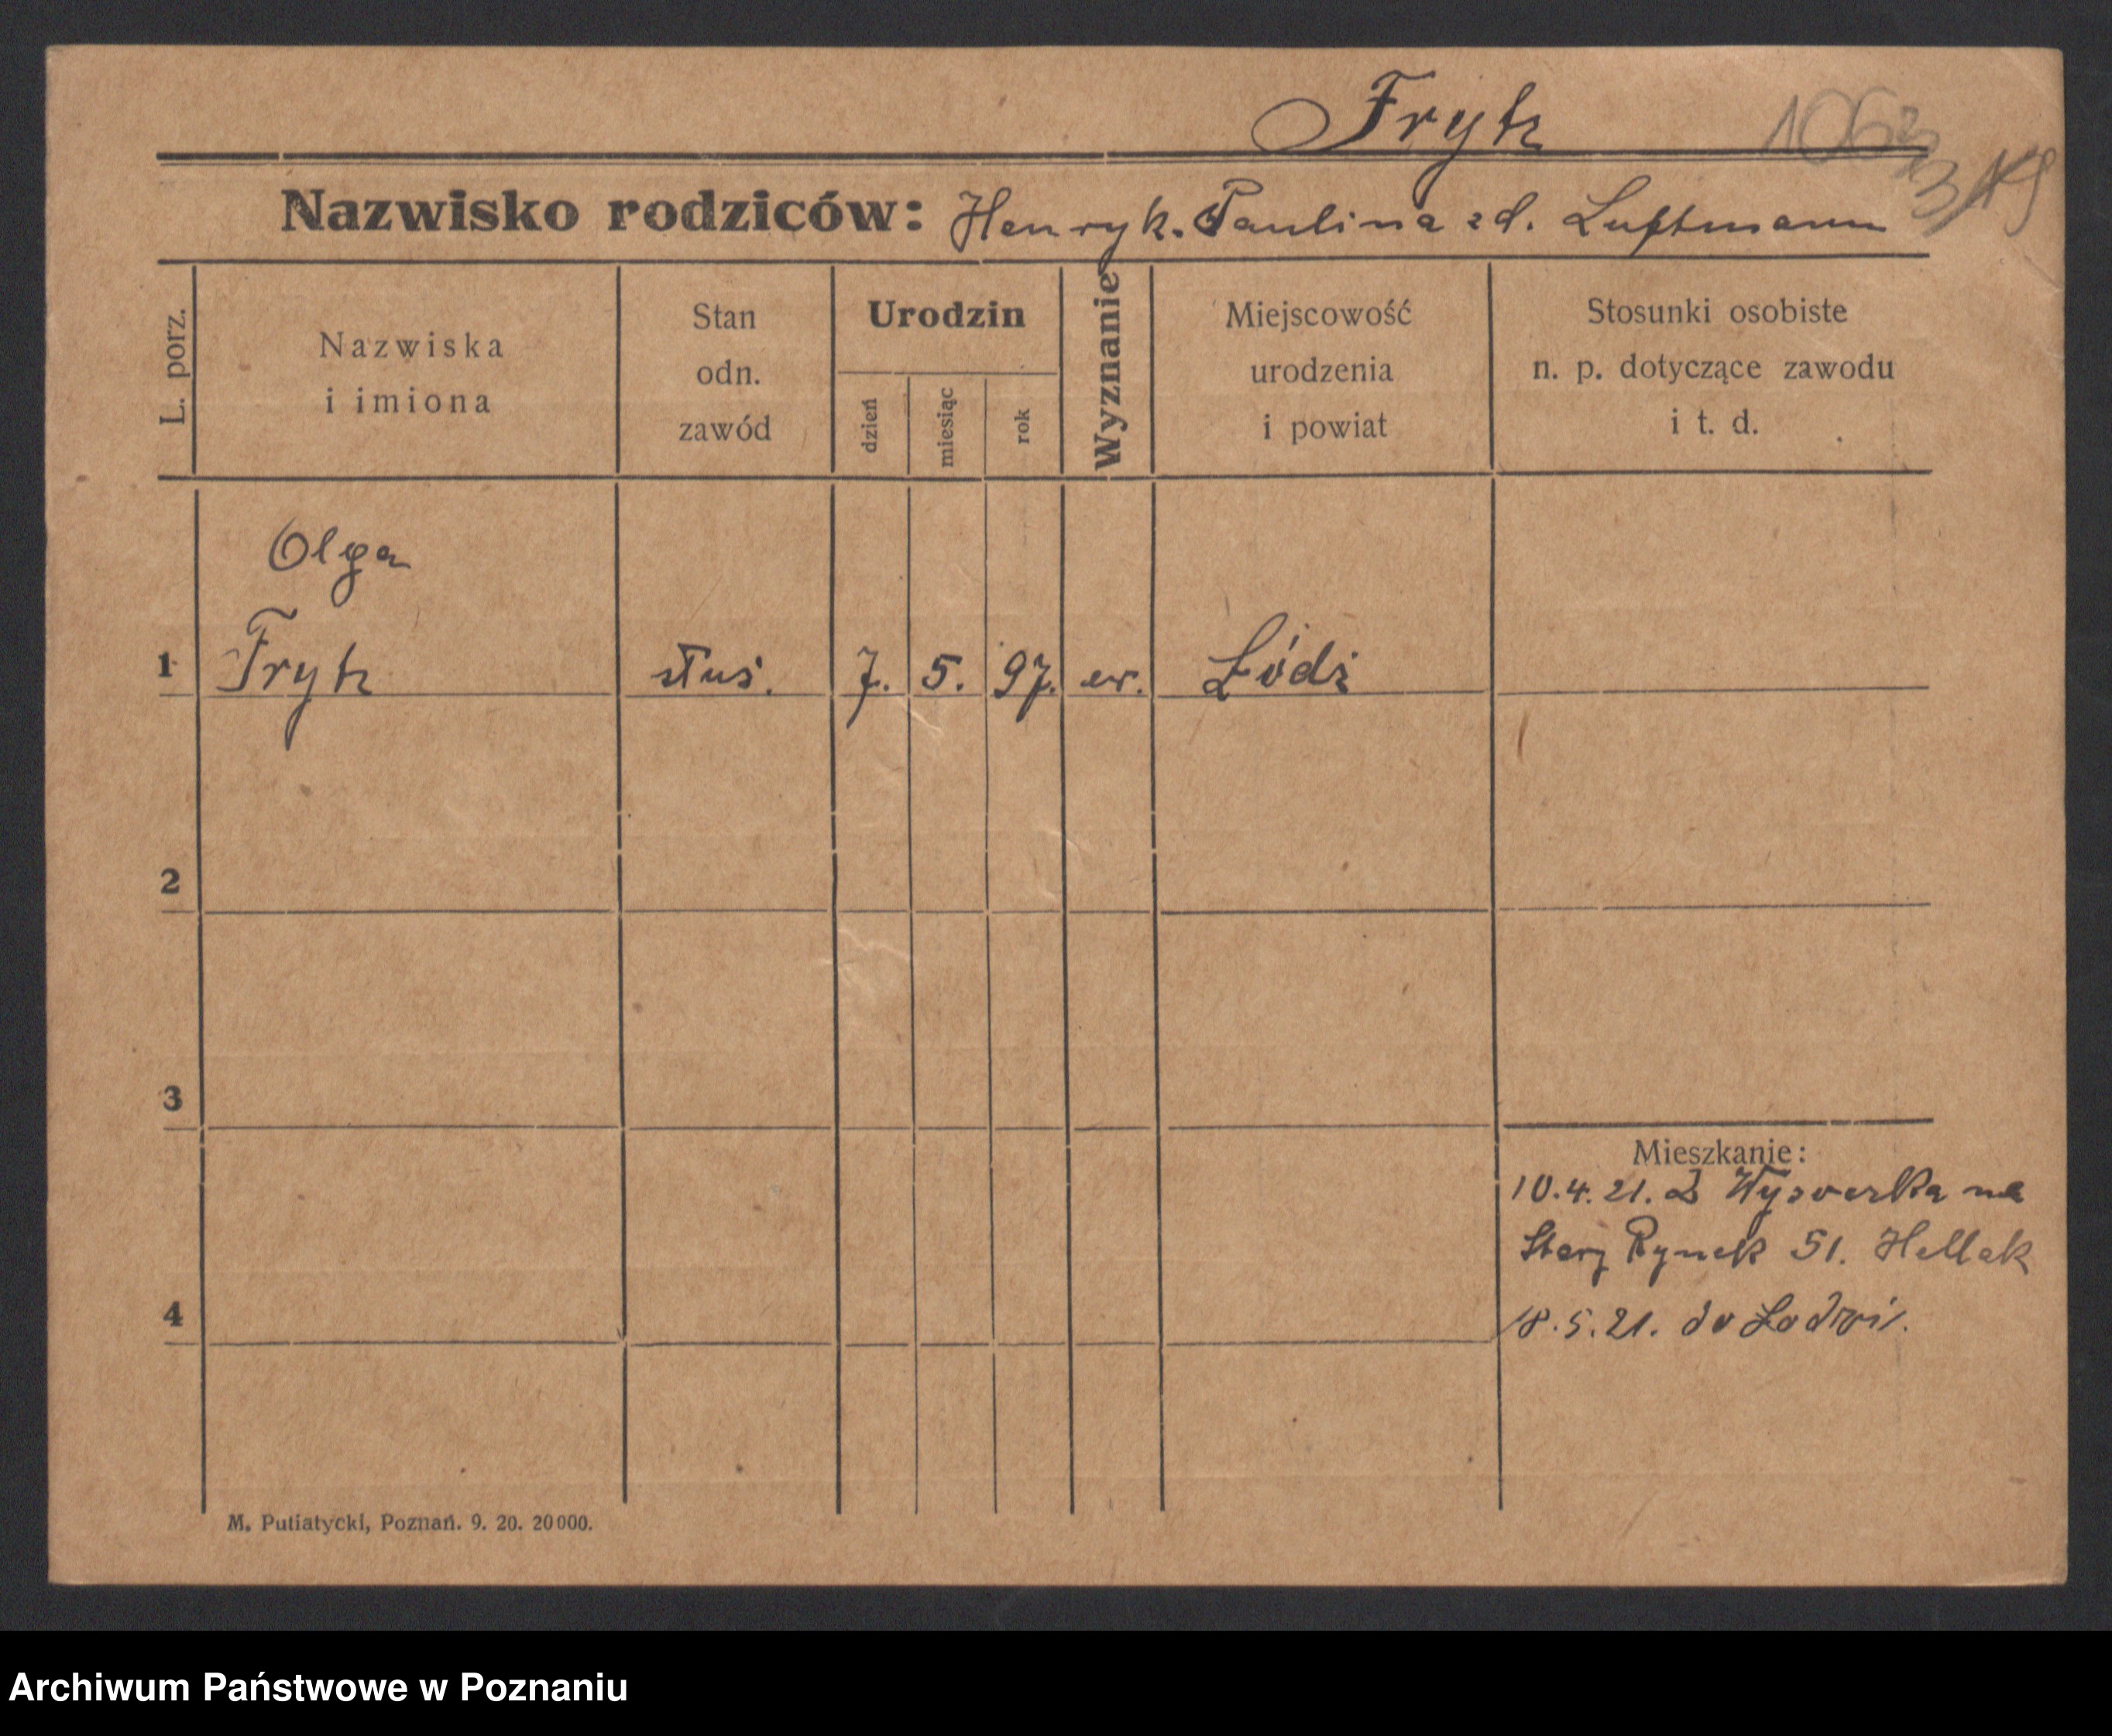 Frytz
Nazwisko rodziców: Henryk. Paulina zd. Luftmann
L. porz.
Nazwiska
i imiona
Stan
odn.
zawód
Urodzin
dzień
miesiąc
rok
Wyznanie
Miejscowość
urodzenia
i powiat
Stosunki osobiste
n. p. dotyczące zawodu
i t. d.
Olga
1 Frytz służ. 7. 5. 97. ew. Łódź
2
3
Mieszkanie:
10.4.21. Z na
Stary Rynek 51.
4
18.5.21. do Lodzi.
M. Putiatycki, Poznań. 9. 20. 20000.
Archiwum Państwowe w Poznaniu